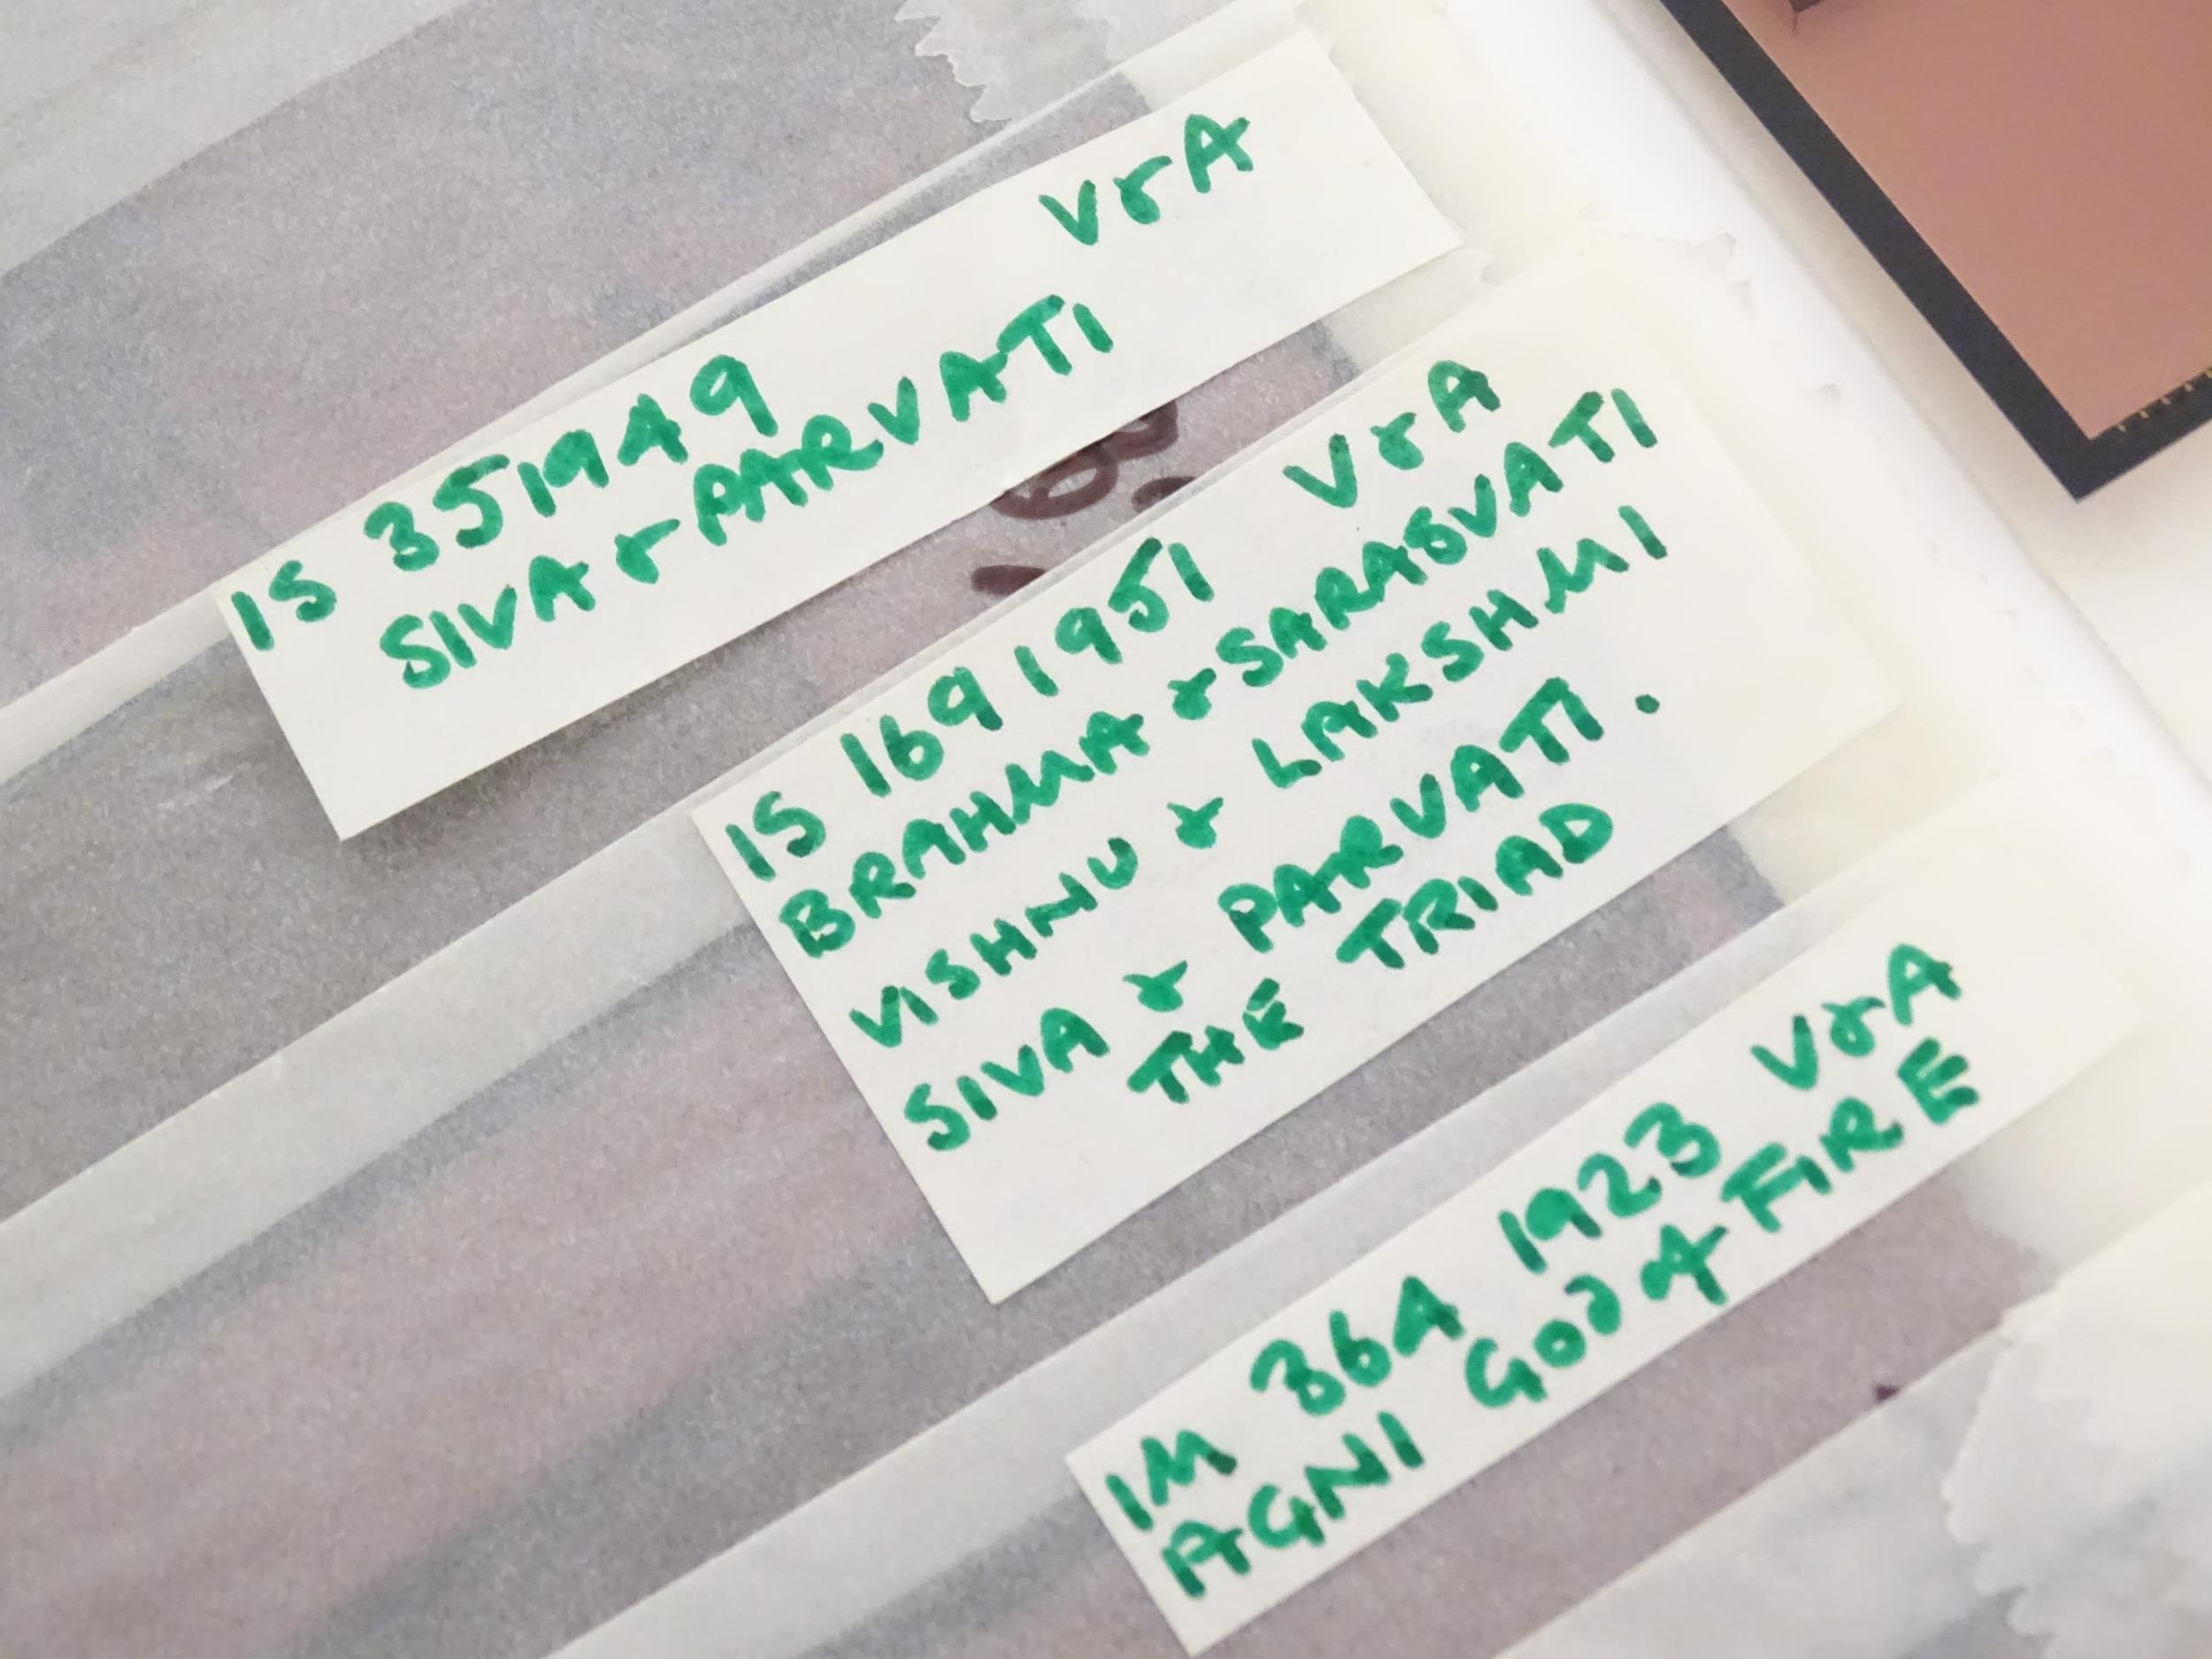 IS 35 1949 V&A
SIVA & PARVATI
IS 169 1951 V&A
BRAHMA & SARASVATI
VISHNU & LAKSHMI
SIVA & PARVATI.
THE TRIAD
IM 36A 1923 V&A
AGNI God of FIRE